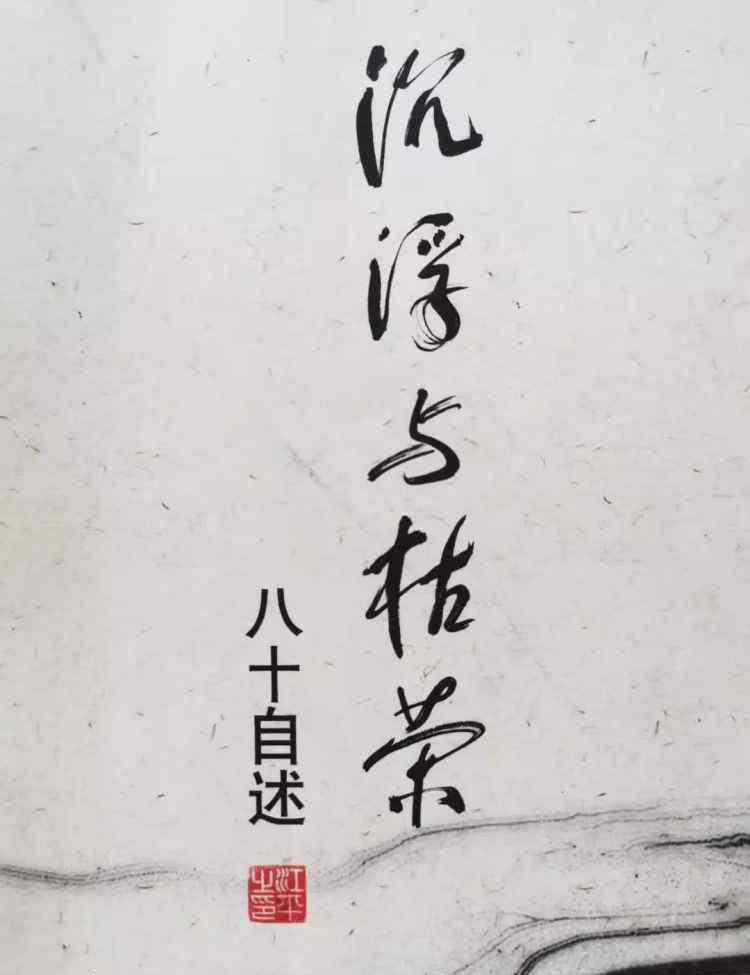 沉浮与枯荣
八十自述
江平之印